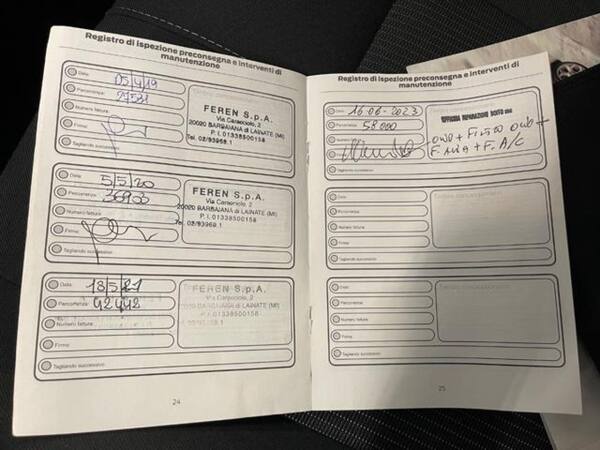 Registro di ispezione preconsegna e interventi di
manutenzione
Data:
05/4/19
Percorrenza:
27531
Numero fattura:
Firma:
Tagliando successivo:
FEREN S.p.A.
Via Caracciolo, 2
20020 BARBAIANA di LAINATE (MI)
P. I. 01338500158
Tel. 02/93969.1
Data:
5/5/20
Percorrenza:
Numero fattura:
Firma:
Tagliando successivo:
FEREN S.p.A.
Via Caracciolo, 2
20020 BARBAIANA di LAINATE (MI)
P. I. 01338500158
Tel. 02/93969.1
Data:
18/5/21
Percorrenza:
42448
Numero fattura:
Firma:
Tagliando successivo:
FEREN S.p.A.
Via Caracciolo, 2
20020 BARBAIANA di LAINATE (MI)
P. I. 01338500158
Tel. 02/93969.1
24
Registro di ispezione preconsegna e interventi di
manutenzione
Data:
16-06-2023
Percorrenza:
58000
Numero
Firma
Tagliando successivo:
OFFICINA RIPARAZIONI
OLIO + FILTRO OLIO +
F. ARIA + F. A/C
Data:
Percorrenza:
Numero fattura:
Firma:
Tagliando successivo:
Data:
Percorrenza:
Numero fattura:
Firma:
Tagliando successivo:
25